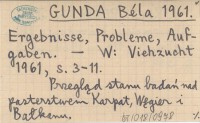 GUNDA Béla 1961.
Ergebnisse, Probleme, Auf-
gaben. — W: Viehzucht
1961, s. 3-11.
Przegląd stanu badań nad
pasterstwem Karpat, Węgier i
Bałkanu.